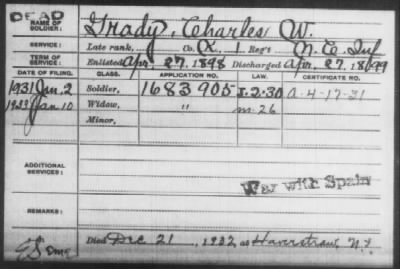 DEAD
NAME OF SOLDIER: Grady, Charles W.
SERVICE: Late rank, Co. K, 1 Reg't N.C. Inf
TERM OF SERVICE: Enlisted Apr. 27. 1898 Discharged Apr. 27. 1899
DATE OF FILING. CLASS. APPLICATION NO. LAW. CERTIFICATE NO.
1931 Jan. 2 Soldier, 1683 905 J.2.30 A-4-17-31
1933 Jan 10 Widow, " m.26
Minor,
ADDITIONAL SERVICES:
War with Spain
REMARKS:
Died Dec 21, 1932, at Haverstraw, N.Y.